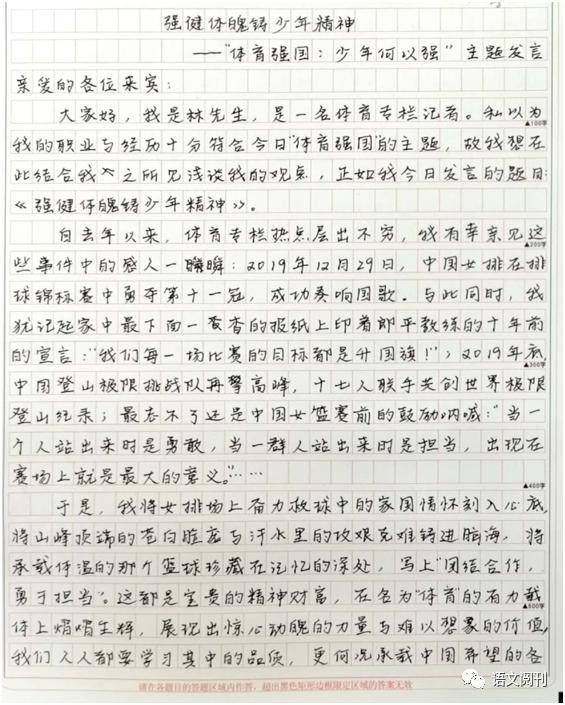 强健体魄铸少年精神
——“体育强国：少年何以强”主题发言
亲爱的各位来宾：
大家好，我是林先生，是一名体育专栏记者。私以为
▲100字
我的职业与经历十分符合今日“体育强国”的主题，故我想在
此结合我个人之所见浅谈我的观点，正如我今日发言的题目：
《强健体魄铸少年精神》。
自去年以来，体育专栏热点层出不穷，我有幸亲见这
▲200字
些事件中的感人一瞬瞬：2019年12月29日，中国女排在排
球锦标赛中勇夺第十一冠，成功奏响国歌．与此同时，我
犹记起家中最下面一沓杳的报纸上印着郎平教练的十年前
的宣言：“我们每一场比赛的目标都是升国旗！”；2019年底，
▲300字
中国登山极限挑战队再攀高峰，十七人联手共创世界极限
登山纪录；最忘不了还是中国女篮赛前的鼓励呐喊：“当一
个人站出来时是勇敢，当一群人站出来时是担当，出现在
赛场上就是最大的意义。”……
▲400字
于是，我将女排场上奋力救球中的家国情怀刻入心底，
将山峰顶端的苍白脸庞与汗水里的攻艰克难铸进脑海，将
承载体温的那个篮球珍藏在记忆的深处，写上“团结合作，
勇于担当”。这都是宝贵的精神财富，在名为“体育”的有力载
▲500字
体上熠熠生辉，展现出惊心动魄的力量与难以想象的价值，
我们人人都要学习其中的品质，更何况承载中国希望的各
请在各题目的答题区域内作答，超出黑色矩形边框限定区域的答案无效
语文阅刊